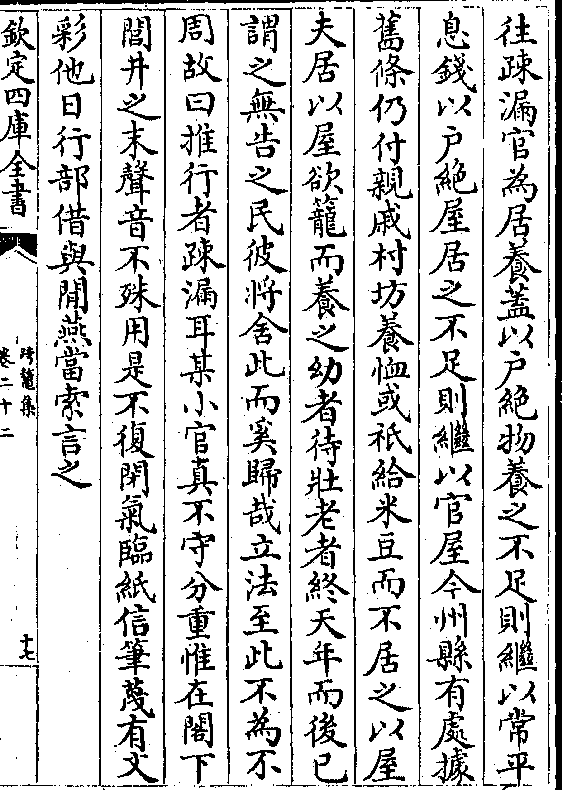 往疎漏官為居養蓋以户絶物養之不足則繼以常平
息錢以户絶屋居之不足則繼以官屋今州縣有處據
舊條仍付親戚村坊養恤或祇給米豆而不居之以屋
夫居以屋欲籠而養之幼者待壯老者終天年而後已
謂之無告之民彼將舍此而奚歸哉立法至此不為不
周故曰推行者疎漏耳某小官真不守分重惟在閣下
閭井之末聲音不殊用是不復閉氣臨紙信筆蔑有文
彩他日行部借與閒燕當索言之
欽定四庫全書
跨鼇集
卷二十二
十七